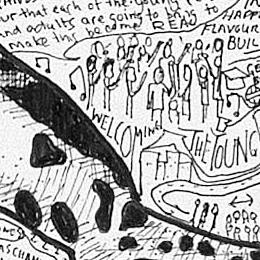 our that each of the young
and adults are going to bring to
make this become REAL
HAPP
FLAVOUR
BUIL
WELCOMING
THE YOUNG